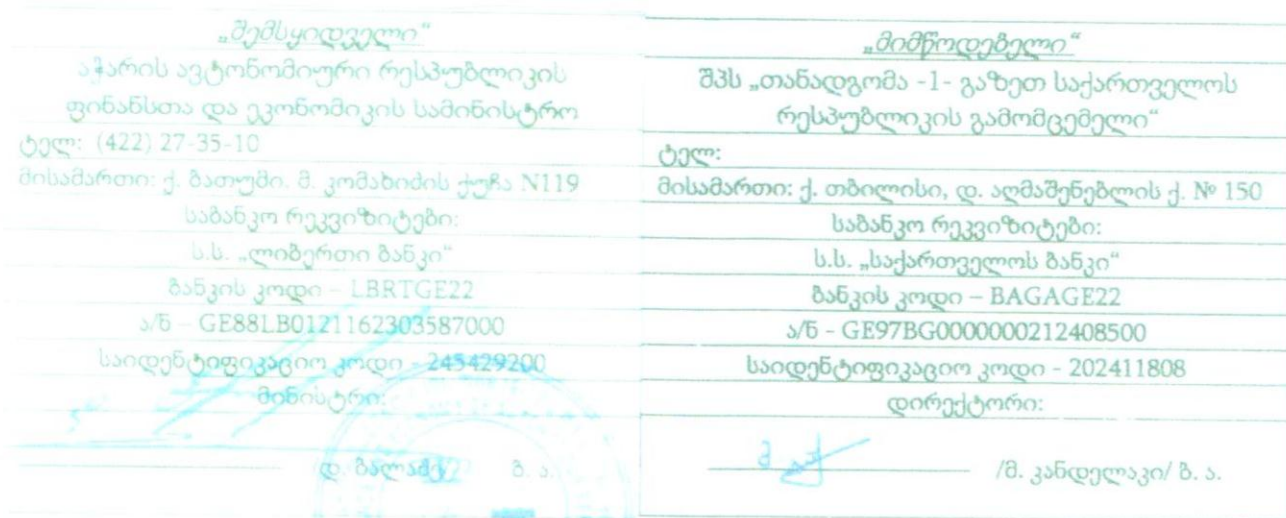 „შემსყიდველი“
აჭარის ავტონომიური რესპუბლიკის
ფინანსთა და ეკონომიკის სამინისტრო
ტელ: (422) 27-35-10
მისამართი: ქ. ბათუმი. მ. კომახიძის ქუჩა N119
საბანკო რეკვიზიტები:
ს.ს. „ლიბერთი ბანკი“
ბანკის კოდი – LBRTGE22
ა/ნ – GE88LB0121162303587000
საიდენტიფიკაციო კოდი - 245429200
მინისტრი:
/დ. ბალაძე/ ბ. ა.
„მიმწოდებელი“
შპს „თანადგომა -1- გაზეთ საქართველოს
რესპუბლიკის გამომცემელი“
ტელ:
მისამართი: ქ. თბილისი, დ. აღმაშენებლის ქ. № 150
საბანკო რეკვიზიტები:
ს.ს. „საქართველოს ბანკი“
ბანკის კოდი – BAGAGE22
ა/ნ - GE97BG0000000212408500
საიდენტიფიკაციო კოდი - 202411808
დირექტორი:
/მ. კანდელაკი/ ბ. ა.